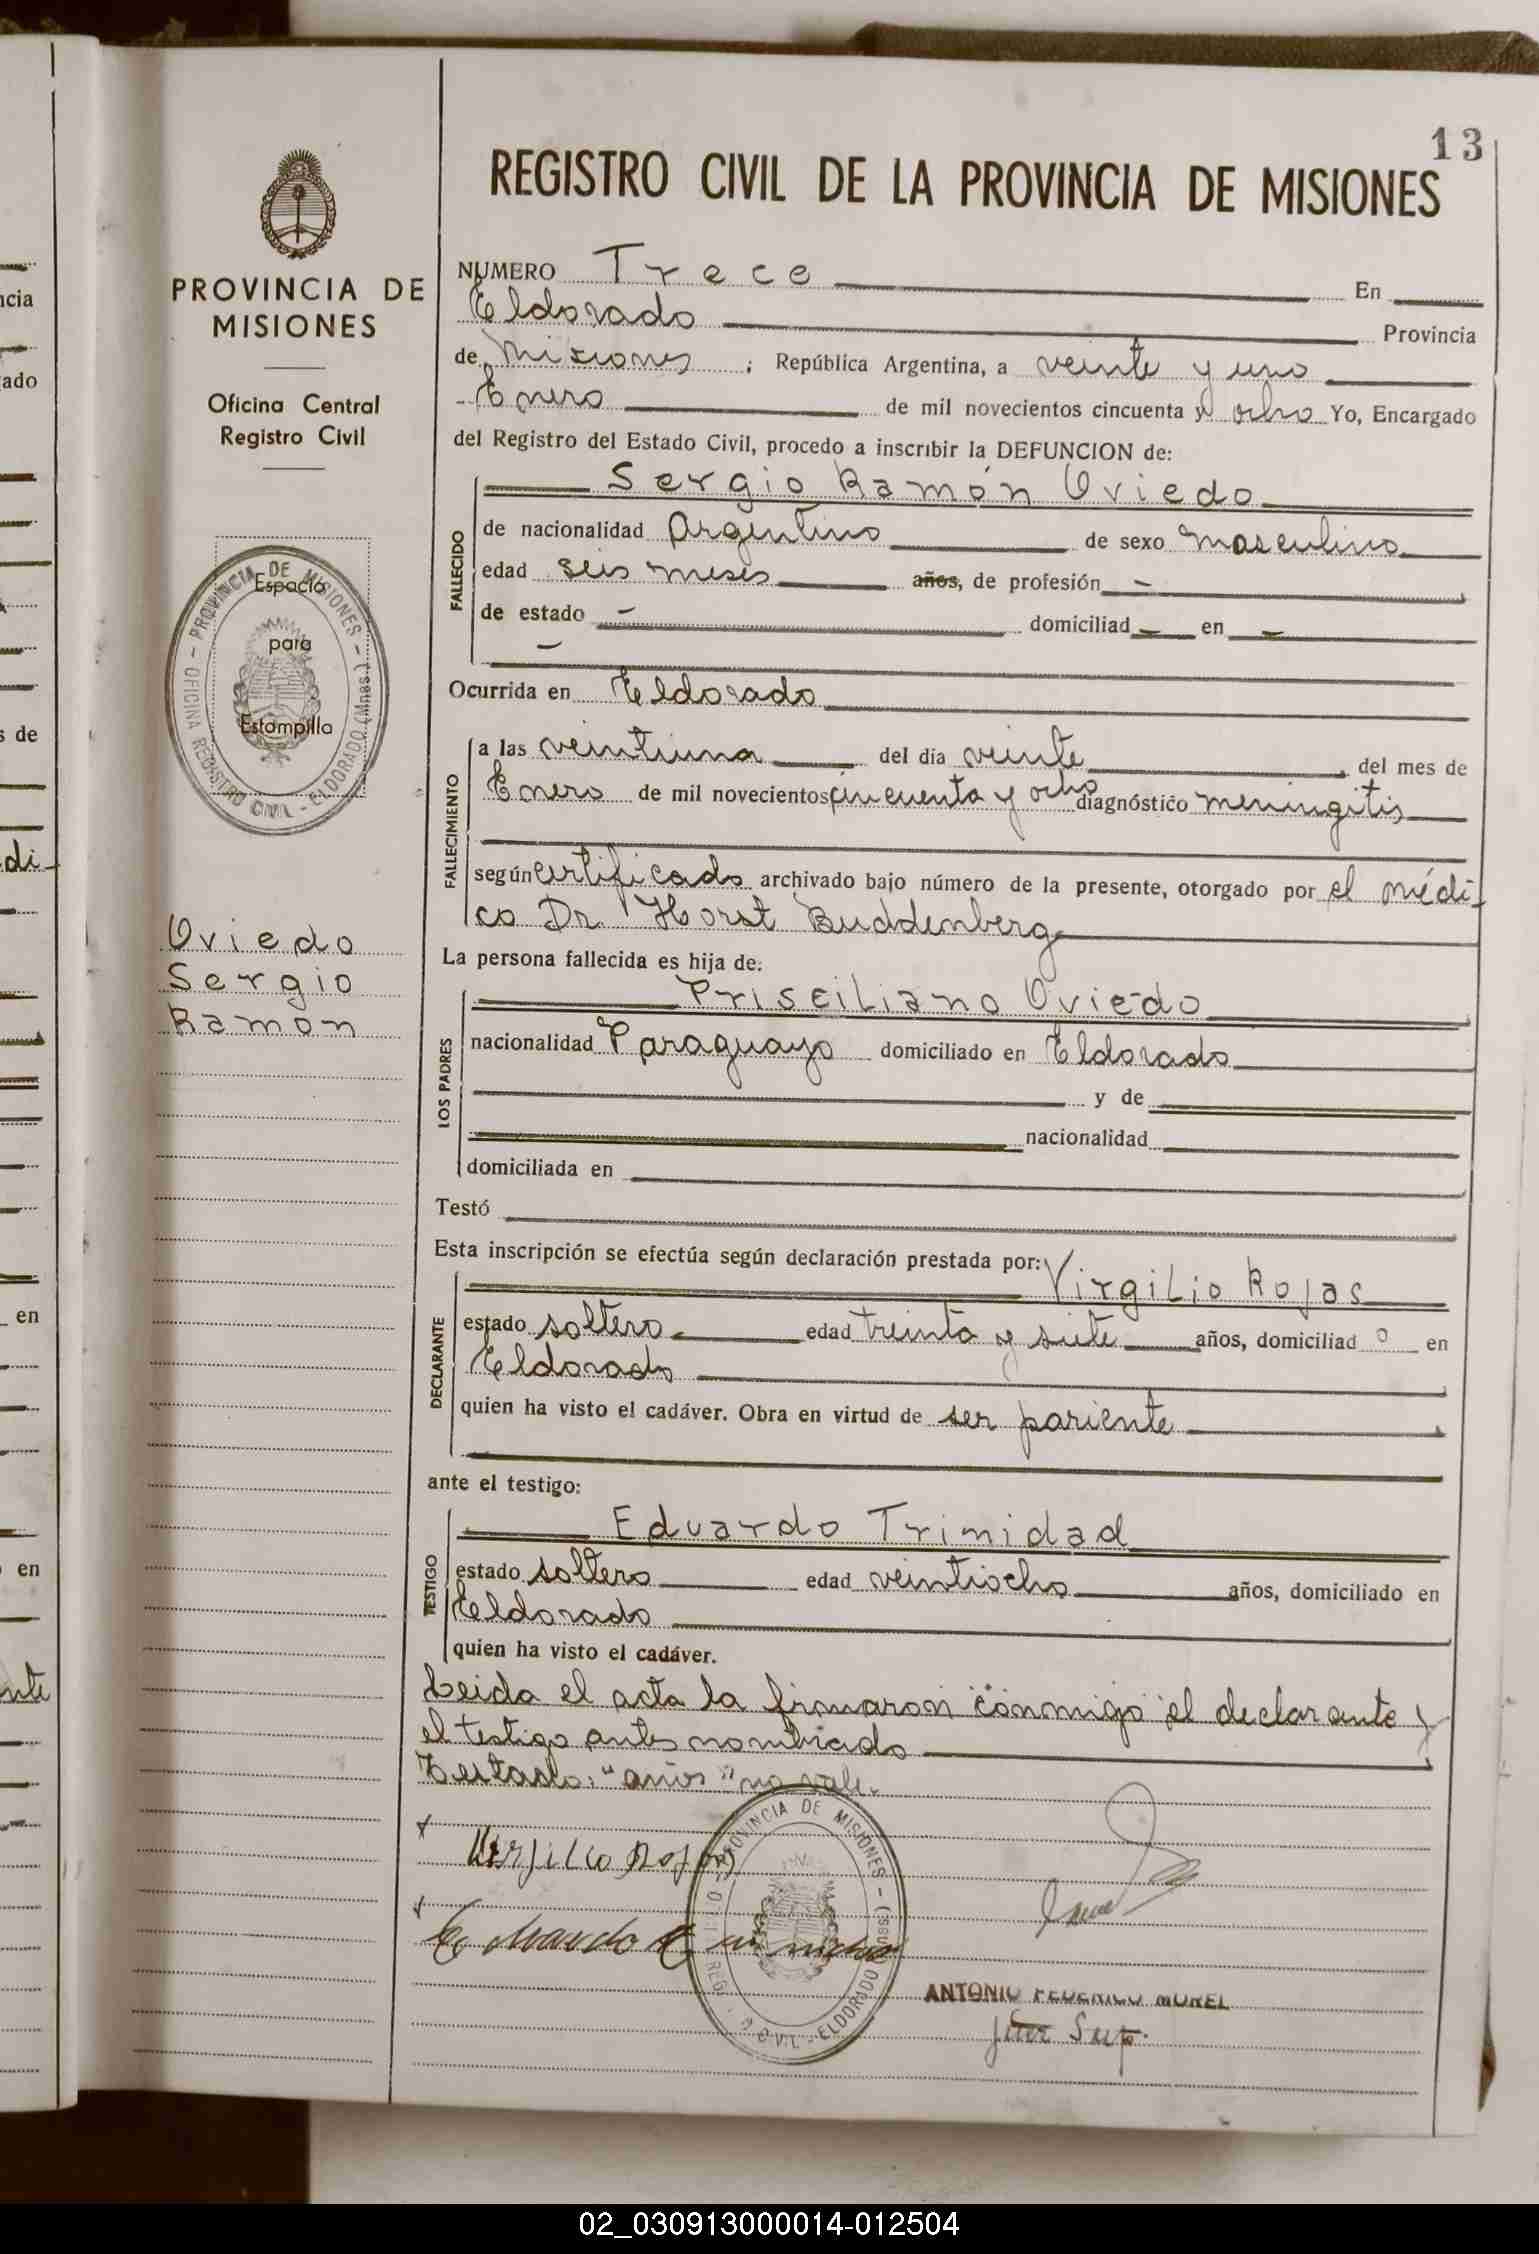 13
REGISTRO CIVIL DE LA PROVINCIA DE MISIONES
PROVINCIA DE
MISIONES
Oficina Central
Registro Civil
PROVINCIA DE MISIONES - OFICINA REGISTRO CIVIL - ELDORADO (Mnes.)
Espacio
para
Estampilla
Oviedo
Sergio
Ramón
NUMERO Trece En
Eldorado Provincia
de Misiones ; República Argentina, a veinte y uno
Enero de mil novecientos cincuenta y ocho Yo, Encargado
del Registro del Estado Civil, procedo a inscribir la DEFUNCION de:
FALLECIDO
Sergio Ramón Oviedo
de nacionalidad Argentino de sexo masculino
edad seis meses años, de profesión -
de estado - domiciliad - en -
-
Ocurrida en Eldorado
FALLECIMIENTO
a las veintiuna del día veinte del mes de
Enero de mil novecientos cincuenta y ocho diagnóstico meningitis
según certificado archivado bajo número de la presente, otorgado por el médi-
co Dr. Horst Buddenberg
La persona fallecida es hija de:
LOS PADRES
Prisciliano Oviedo
nacionalidad Paraguayo domiciliado en Eldorado
y de
nacionalidad
domiciliada en
Testó
Esta inscripción se efectúa según declaración prestada por:
DECLARANTE
Virgilio Rojas
estado soltero edad treinta y siete años, domiciliad o en
Eldorado
quien ha visto el cadáver. Obra en virtud de ser pariente
ante el testigo:
TESTIGO
Eduardo Trinidad
estado soltero edad veintiocho años, domiciliado en
Eldorado
quien ha visto el cadáver.
Leida el acta la firmaron conmigo el declarante y
el testigo antes nombrado
Testado: "años" no vale.
Virjilio Rojas
PROVINCIA DE MISIONES - ELDORADO
ANTONIO FEDERICO MOREL
Sup.
02_030913000014-012504